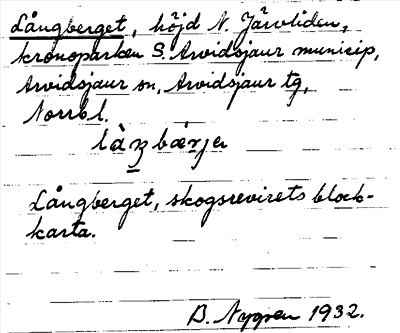 Långberget, höjd N. Järvliden,
kronoparken S. Arvidsjaur municip,
Arvidsjaur sn, Arvidsjaur tg,
Norrb l.
làŋbǽrjer
Långberget, skogsrevirets block-
karta.
B. Nygren 1932.